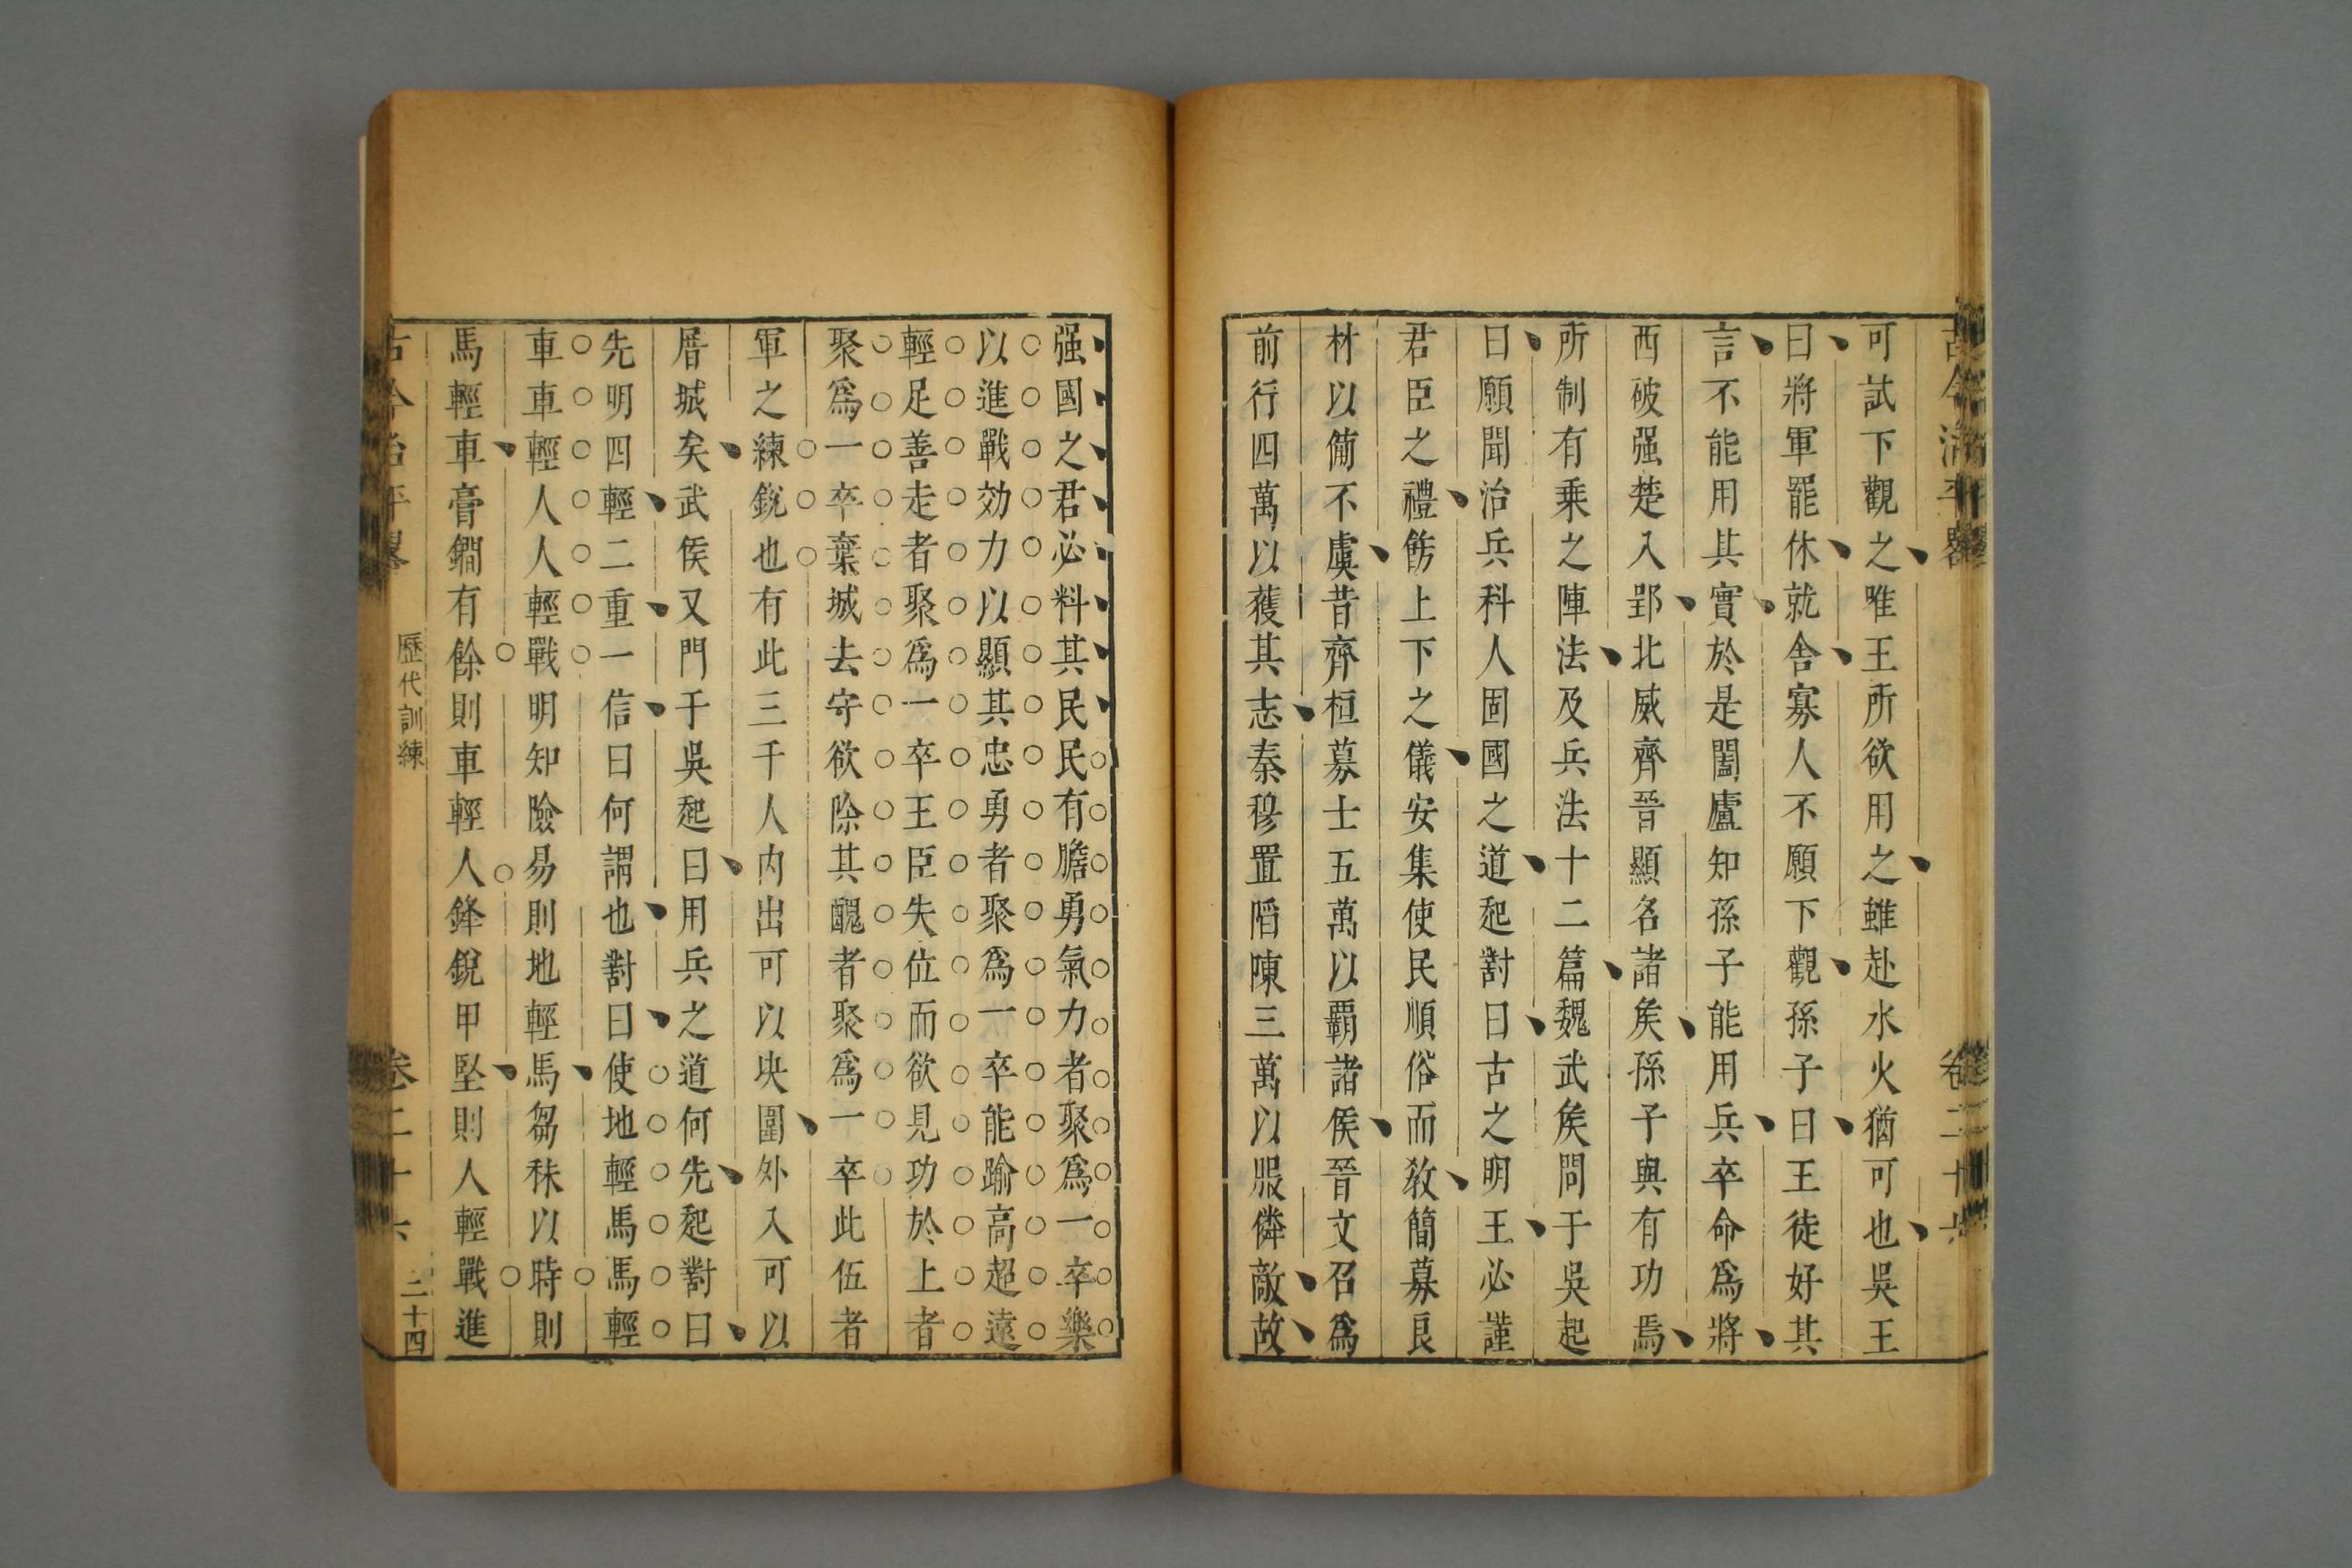 可試下觀之唯王所欲用之雖赴水火猶可也吳王
曰將軍罷休就舍寡人不願下觀孫子曰王徒好其
言不能用其實於是闔廬知孫子能用兵卒命爲將
西破强楚入郢北威齊晉顯名諸矦孫子與有功焉
所制有乗之陣法及兵法十二篇魏武矦問于吳起
曰願聞治兵科人固國之道起對曰古之明王必謹
君臣之禮飭上下之儀安集使民順俗而敎簡募良
材以備不虞昔齊桓募士五萬以覇諸侯晉文召爲
前行四萬以獲其志秦穆置陷陳三萬以服隣敵故
强國之君必料其民民有膽勇氣力者聚爲一卒樂
以進戰効力以顯其忠勇者聚爲一卒能踰高超遠
輕足善走者聚爲一卒王臣失位而欲見功於上者
聚爲一卒棄城去守欲除其醜者聚爲一卒此伍者
軍之練銳也有此三千人内出可以决圍外入可以
屠城矣武侯又問于吳起曰用兵之道何先起對曰
先明四輕二重一信曰何謂也對曰使地輕馬馬輕
車車輕人人輕戰明知險易則地輕馬芻秣以時則
馬輕車膏鐗有餘則車輕人鋒銳甲堅則人輕戰進
古今治平畧
歷代訓練
卷二十六
二十四